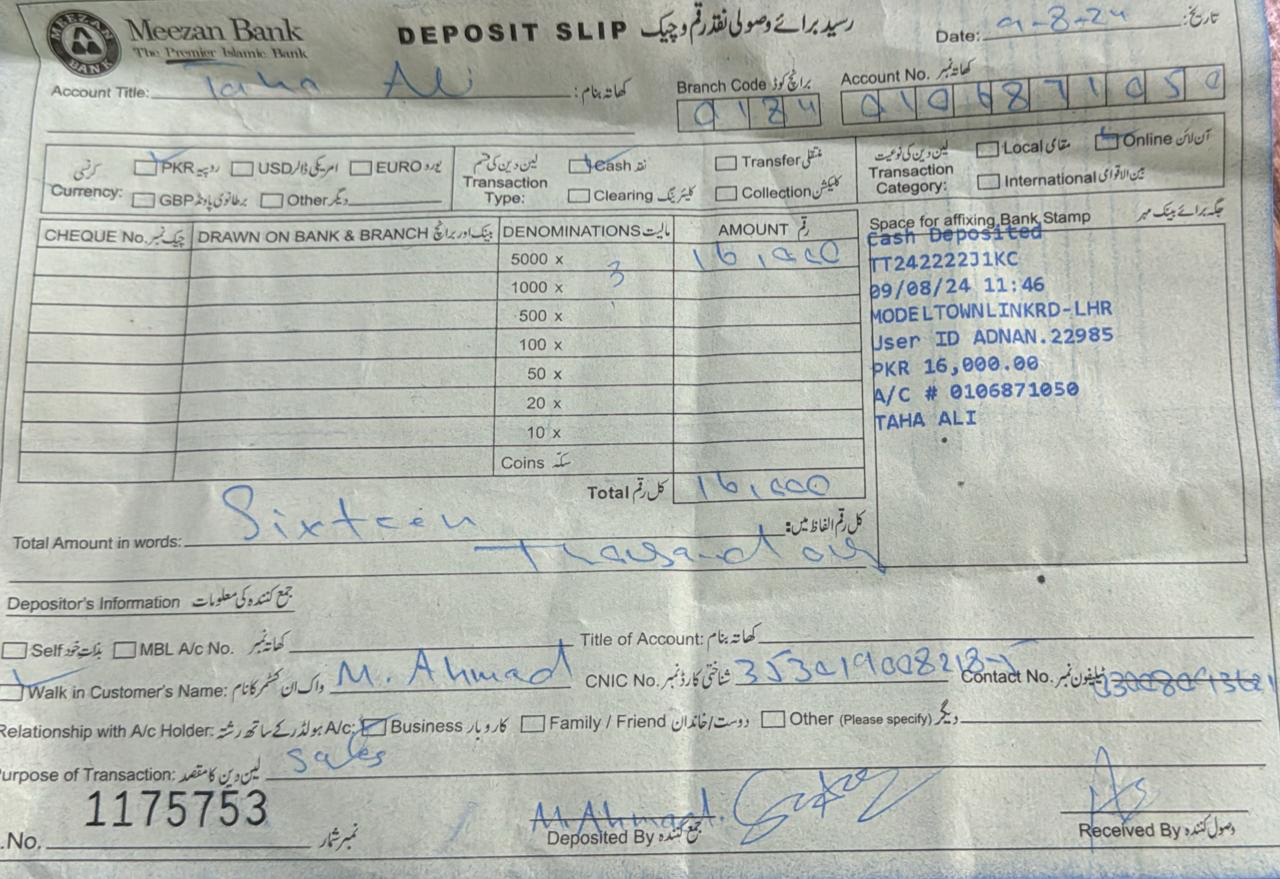 MEEZAN BANK
Meezan Bank
The Premier Islamic Bank
DEPOSIT SLIP رسید برائے وصولی نقد رقم و چیک
Date: 9-8-24 تاریخ:
Account Title: Taha Ali کھاتہ بنام:
Branch Code برانچ کوڈ 0124
Account No. کھاتہ نمبر 0106871050
Currency: کرنسی PKR روپیہ USD امریکی ڈالر EURO یورو
GBP برطانوی پاؤنڈ Other دیگر
Transaction Type: لین دین کی قسم Cash نقد Transfer منتقلی
Clearing کلیئرنگ Collection کلیکشن
Transaction Category: لین دین کی نوعیت Local مقامی Online آن لائن
International بین الاقوامی
CHEQUE No. چیک نمبر DRAWN ON BANK & BRANCH بینک اور برانچ DENOMINATIONS مالیت AMOUNT رقم
5000 x 3 16,000
1000 x
500 x
100 x
50 x
20 x
10 x
Coins سکہ
Total کل رقم 16,000
Space for affixing Bank Stamp جگہ برائے بینک مہر
Cash Deposited
TT242222J1KC
09/08/24 11:46
MODELTOWNLINKRD-LHR
User ID ADNAN.22985
PKR 16,000.00
A/C # 0106871050
TAHA ALI
Total Amount in words: Sixteen کل رقم الفاظ میں:
Thousand only
Depositor's Information جمع کنندہ کی معلومات
Self بذات خود MBL A/c No. کھاتہ نمبر Title of Account: کھاتہ بنام
Walk in Customer's Name: واک ان کسٹمر کا نام M. Ahmad CNIC No. شناختی کارڈ نمبر Contact No. ٹیلیفون نمبر
Relationship with A/c Holder: اکاؤنٹ ہولڈر کے ساتھ رشتہ A/c: Business کاروبار Family / Friend دوست/خاندان Other (Please specify) دیگر
urpose of Transaction: لین دین کا مقصد: Sales
.No. 1175753 نمبر شمار
M. Ahmad.
Deposited By جمع کنندہ
Received By وصول کنندہ